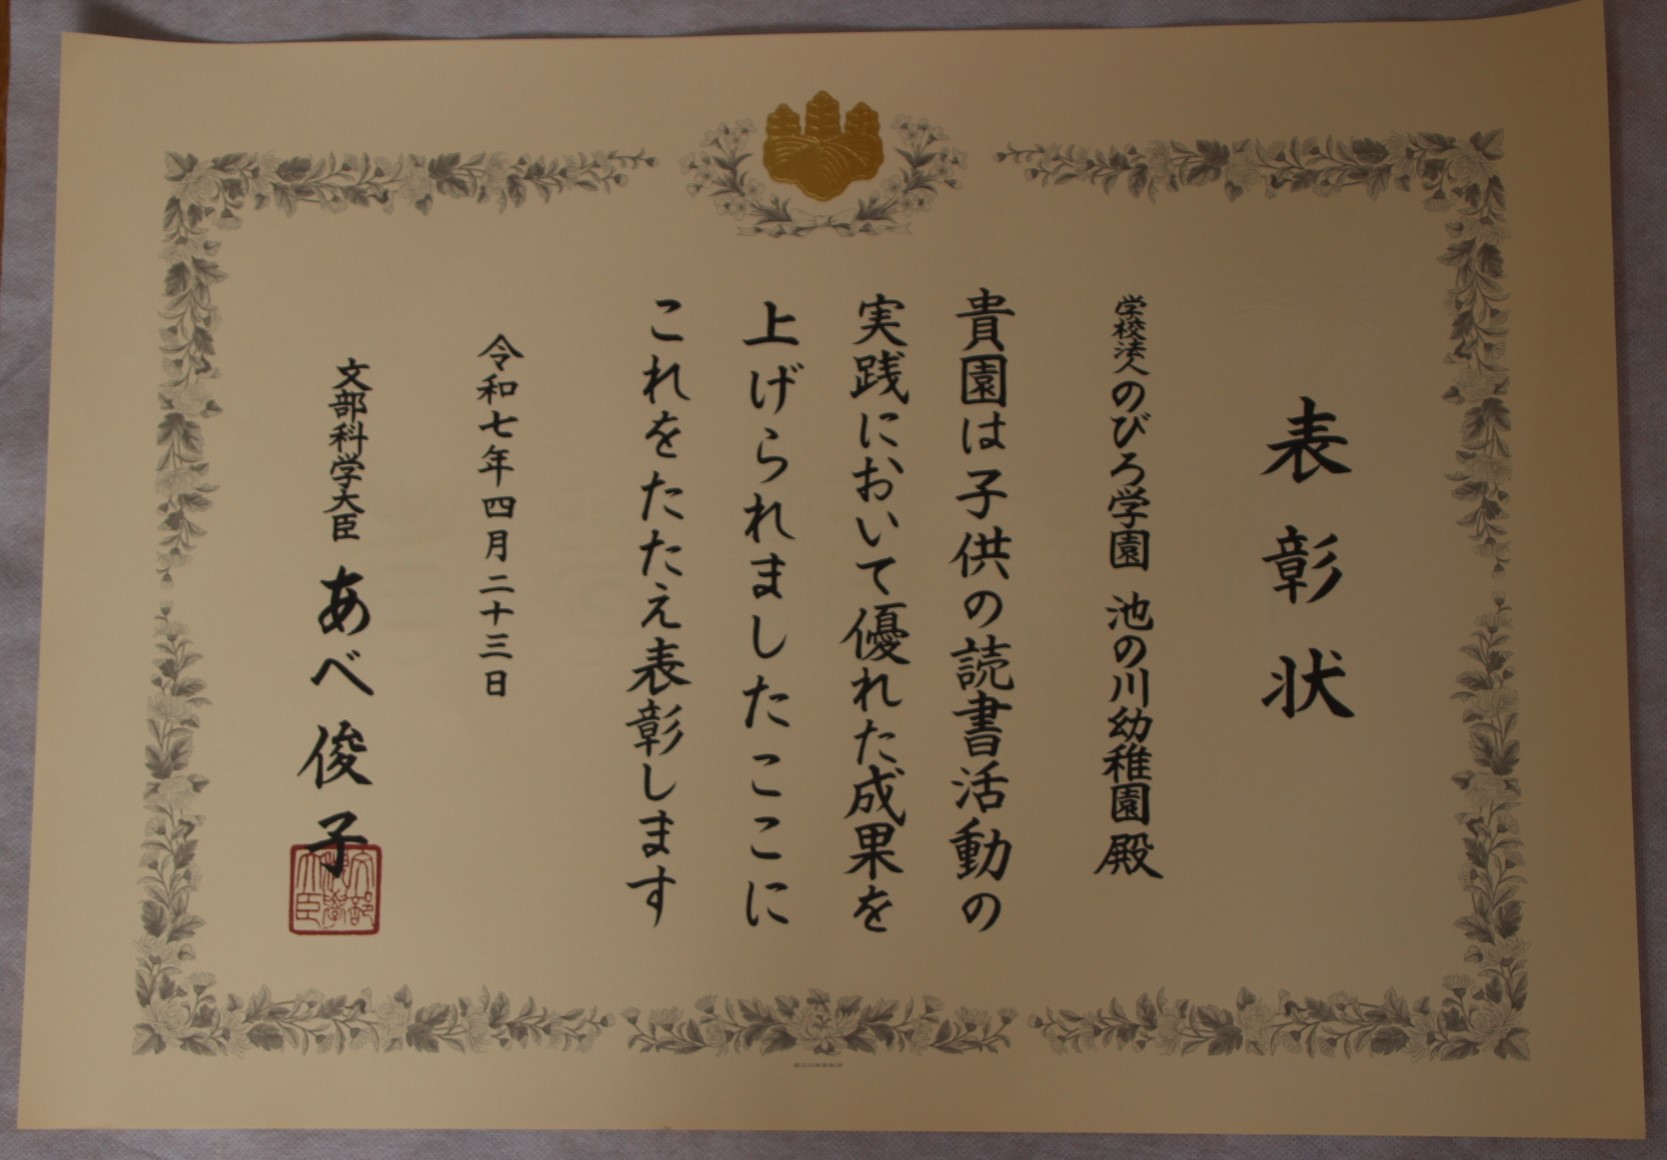 表彰状
学校法人のびろ学園 池の川幼稚園殿
貴園は子供の読書活動の
実践において優れた成果を
上げられましたここに
これをたたえ表彰します
令和七年四月二十三日
文部科学大臣 あべ俊子
文部科学大臣